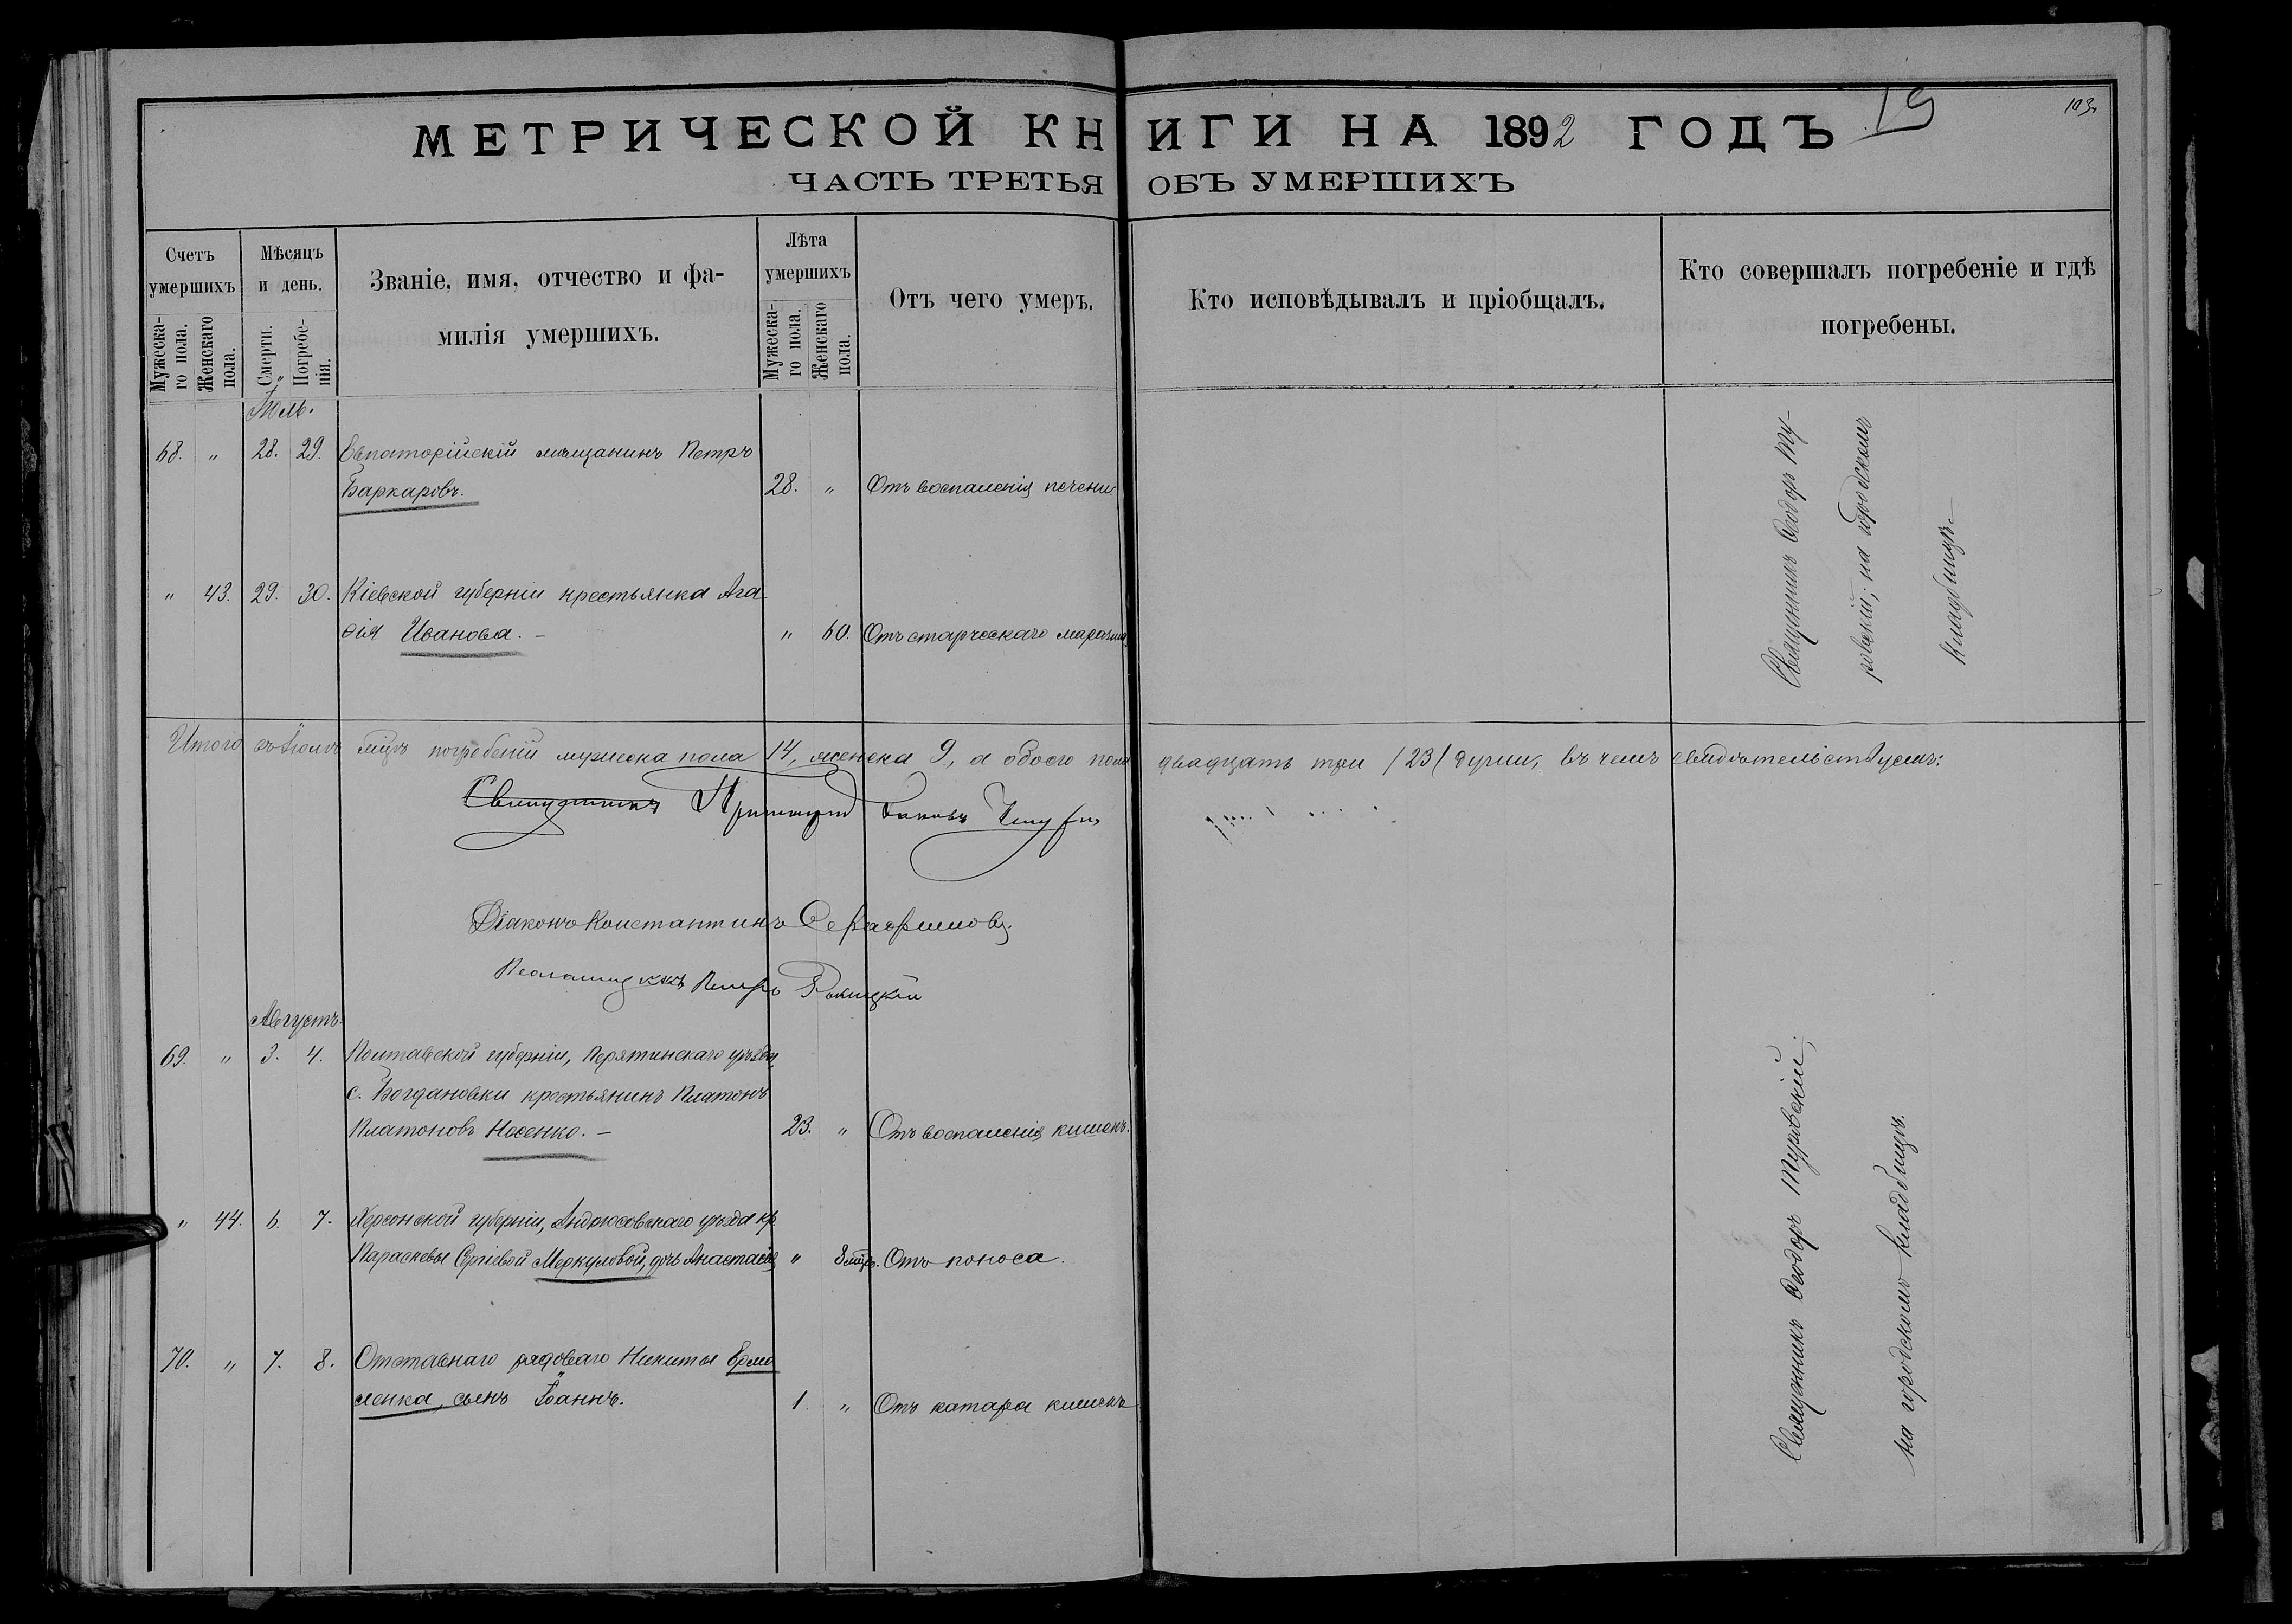 19
103.
МЕТРИЧЕСКОЙ КНИГИ НА 1892 ГОДЪ
ЧАСТЬ ТРЕТЬЯ ОБЪ УМЕРШИХЪ
Счетъ умершихъ.
Мужеска-го пола.
Женскаго пола.
Мѣсяцъ и день.
Смерти.
Погребе-нія.
Званіе, имя, отчество и фа-
милія умершихъ.
Лѣта умершихъ
Мужеска-го пола.
Женскаго пола.
Отъ чего умеръ.
Кто исповѣдывалъ и пріобщалъ.
Кто совершалъ погребеніе и гдѣ
погребены.
Іюль.
68. " 28. 29. Евпаторійскій мѣщанинъ Петръ
Баркаровъ. 28. " Отъ воспаленія печени.
Священникъ Ѳеодоръ Ту-
ровскій; на городскомъ
кладбищѣ.
" 43. 29. 30. Кіевской губерніи крестьянка Ага-
ѳія Иванова. " 60. Отъ старческаго маразма
Итого въ Іюлѣ м-цѣ погребеній мужеска пола 14, женска 9, а обоего пола двадцать три /23/ души, въ чемъ свидѣтельствуемъ:
Священникъ Протоіерей Іаковъ
Діаконъ Константинъ Серафимовъ.
Псаломщикъ Петръ
Августъ.
69. " 3. 4. Полтавской губерніи, Пирятинскаго уѣзда,
с. Богдановки крестьянинъ Платонъ
Платоновъ Носенко. 23. " Отъ воспаленія кишекъ.
Священникъ Ѳеодоръ Туровскій;
на городскомъ кладбищѣ.
" 44. 6. 7. Херсонской губерніи, Андрюсовскаго уѣзда кр.
Параскевы Сергіевой Меркуловой, дочь Анастасія " 8 мѣс. Отъ поноса.
70. " 7. 8. Отставнаго рядоваго Никиты Ермо-
ленка, сынъ Іоаннъ. 1. " Отъ катара кишекъ